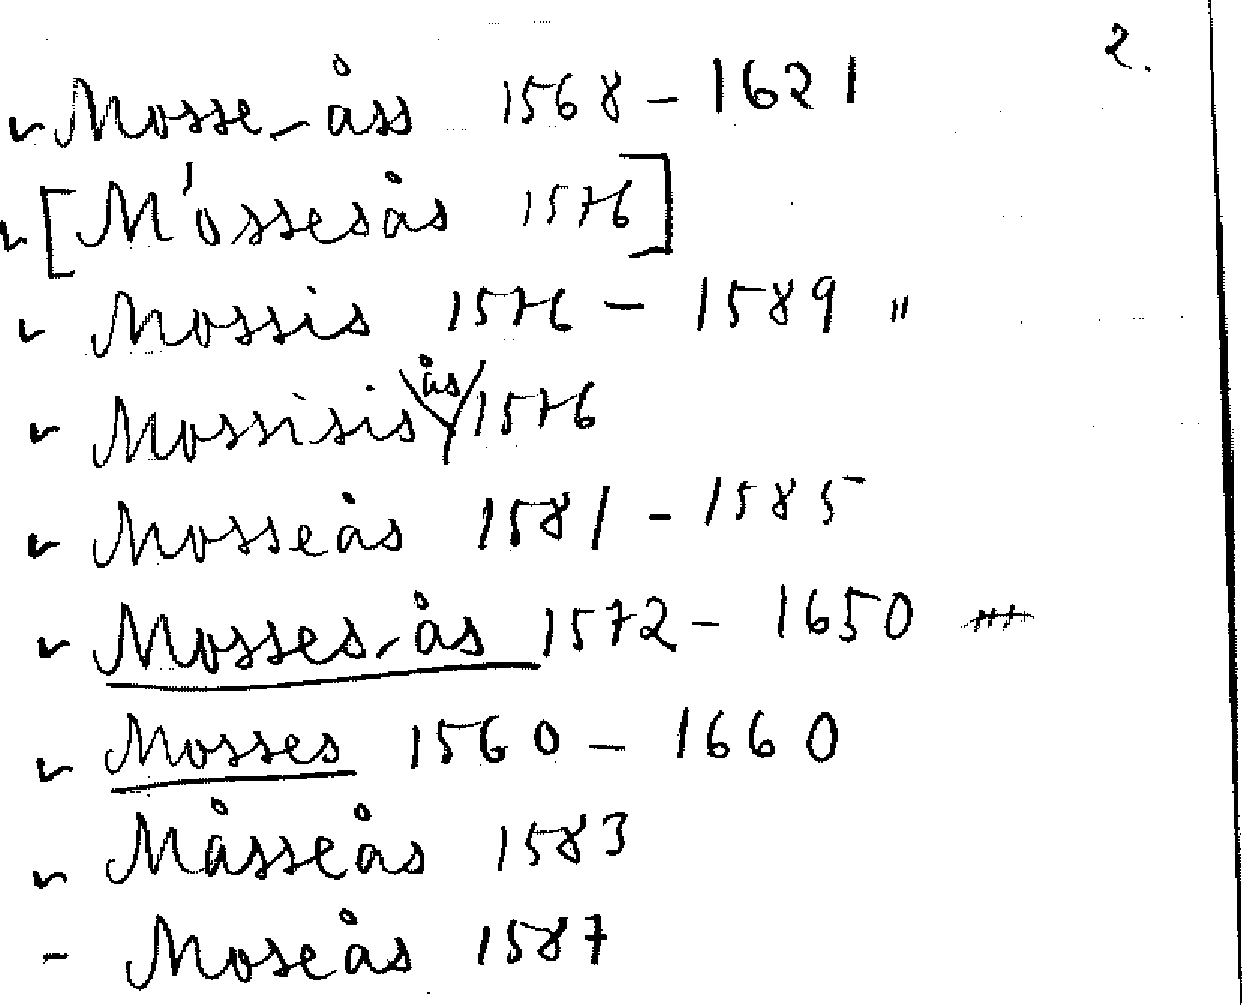 2.
Mosse-åss 1568 - 1621
[M'ossesås 1576]
Mossis 1576 - 1589 "
Mossisis ås 1576
Mosseås 1581 - 1585
Mosses-ås 1572 - 1650
Mosses 1560 - 1660
Måsseås 1583
- Moseås 1587